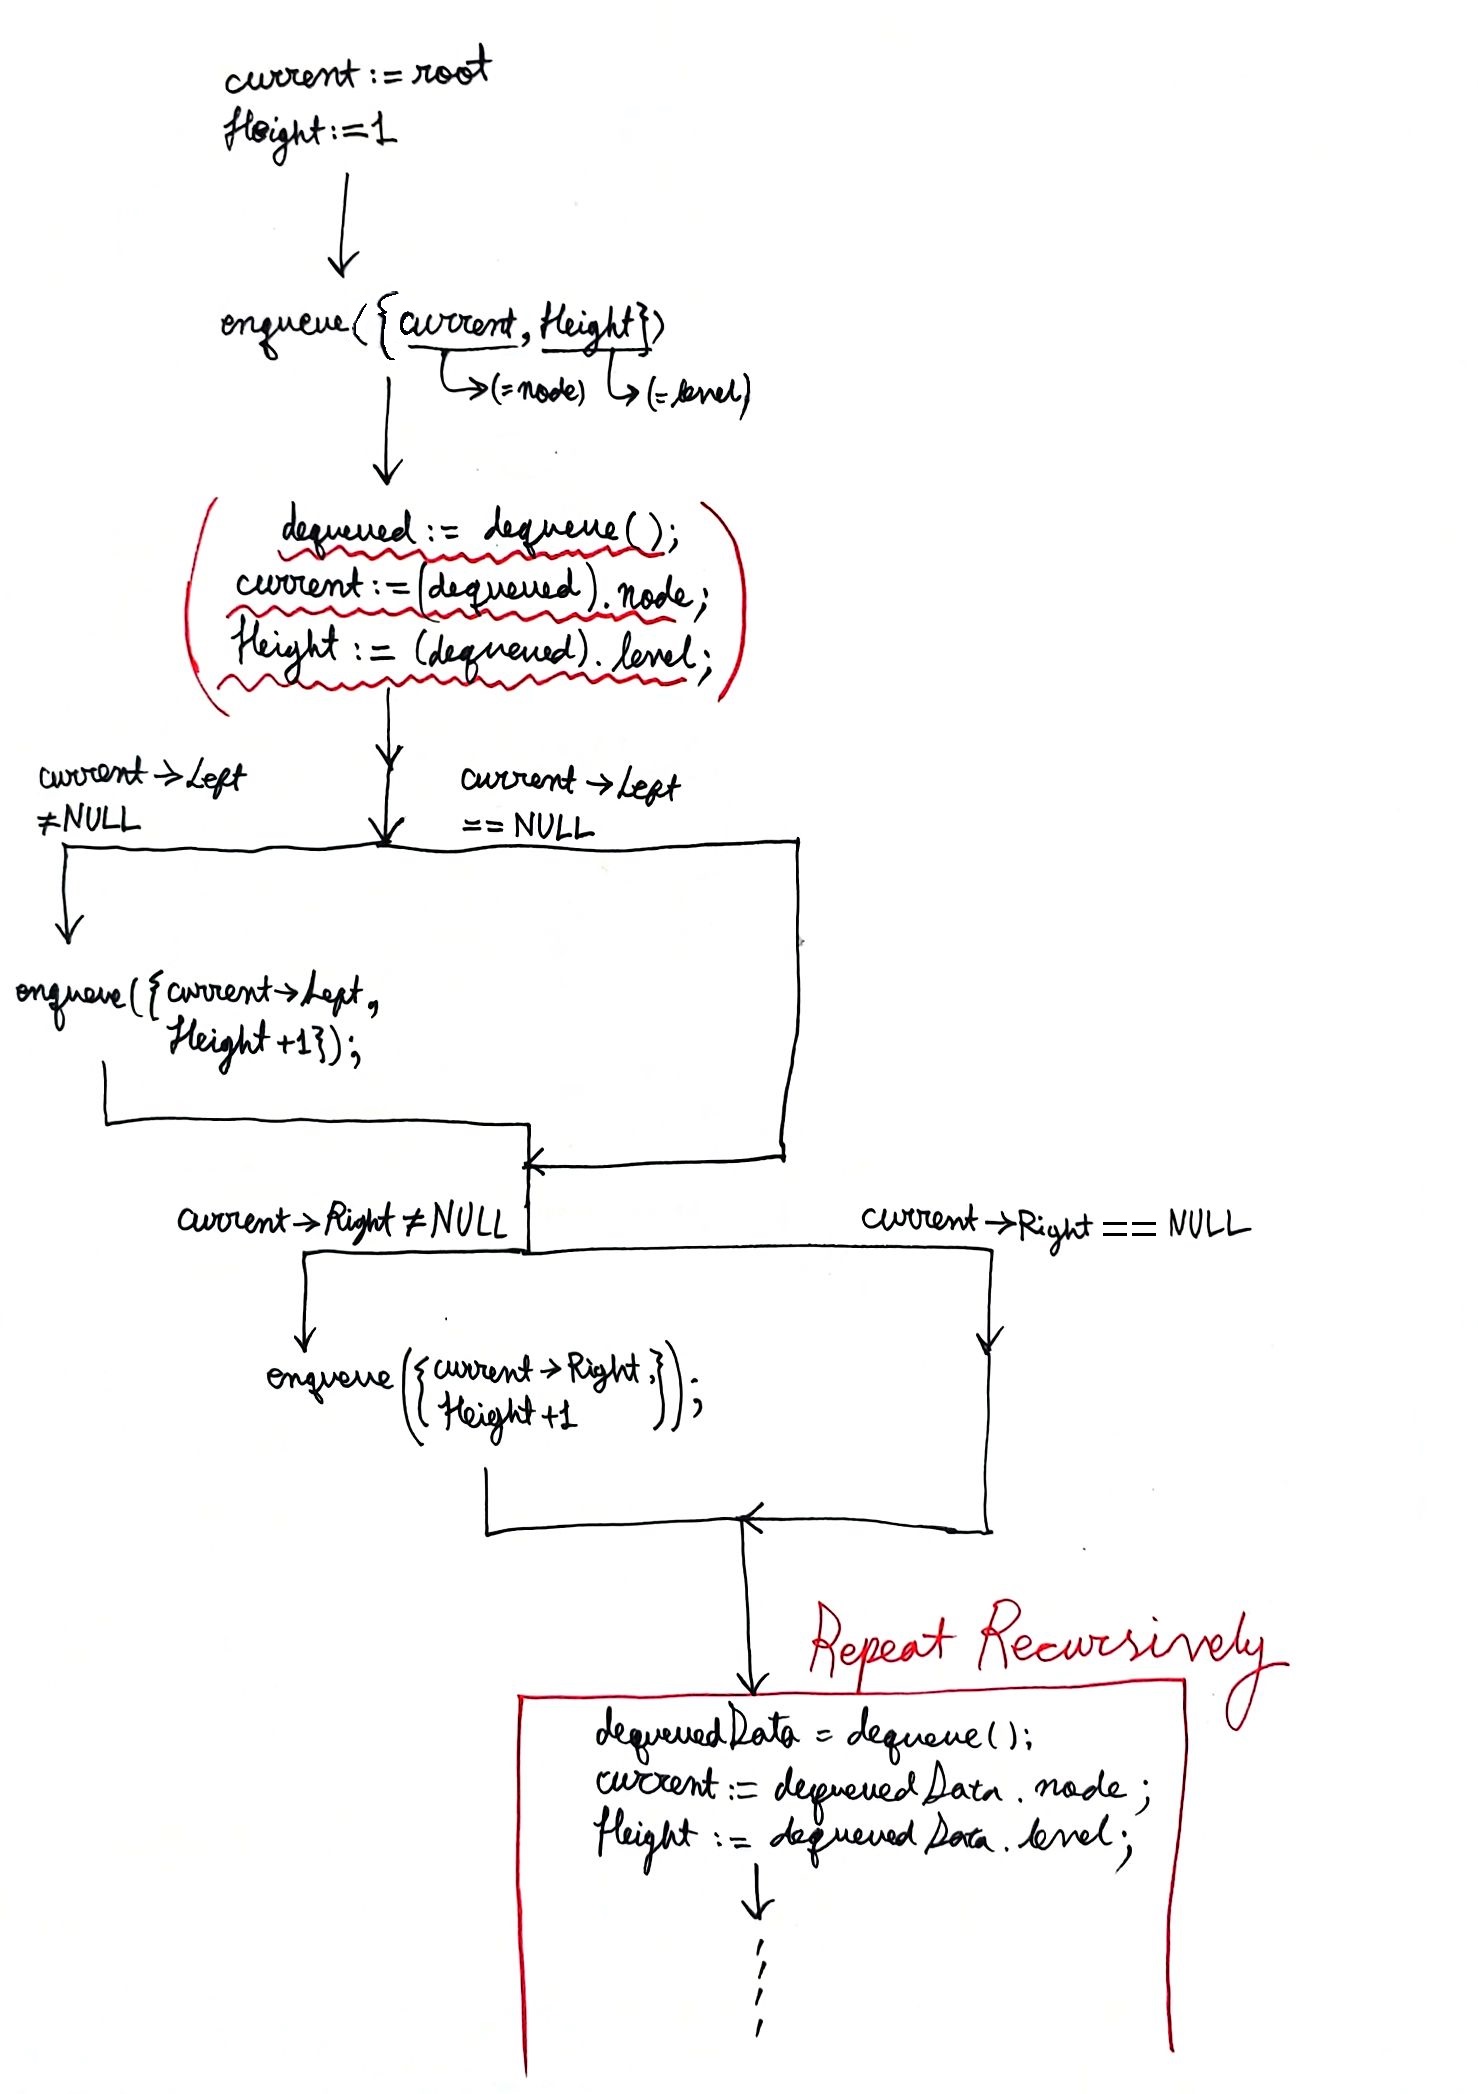 current := root
Height:=1
enqueue({current, Height})
(=node) (=level)
dequeued := dequeue();
current:=(dequeued).node;
Height := (dequeued). level;
current→Left
≠NULL
current→Left
== NULL
enqueue({current→Left,
Height+1});
current→Right≠NULL
current→Right == NULL
enqueue({current→Right,
Height+1});
Repeat Recursively
dequeuedData = dequeue();
current := dequeuedData.node;
Height := dequeuedData.level;